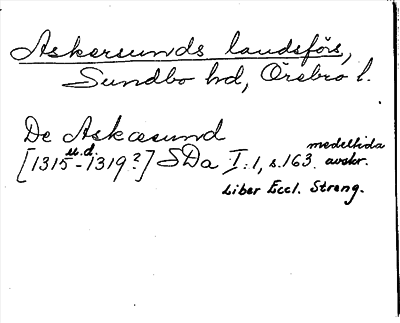 Askersunds landsförs,
Sundbo hd, Örebro l.
De Askæsund
u.d. medeltida
[1315-1319?] SDa I:1, s.163. avskr.
Liber Eccl. Streng.